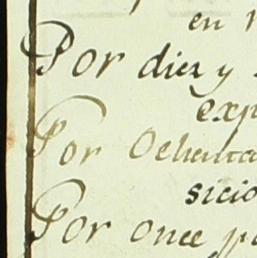 en
Por diez y
exp
Por Ochenta
sicio
Por once